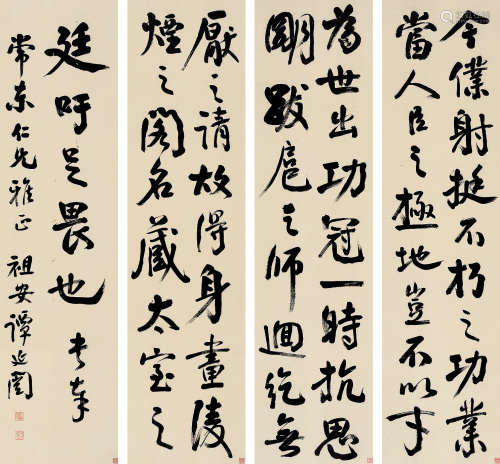 今僕射挺不朽之功業
當人臣之極地豈不以才
為世出功冠一時抗思
明跋扈之師迴紇無
厭之請故得身畫陵
煙之閣名藏太室之
廷吁足畏也 書奉
常東仁兄雅正 祖安譚延闓